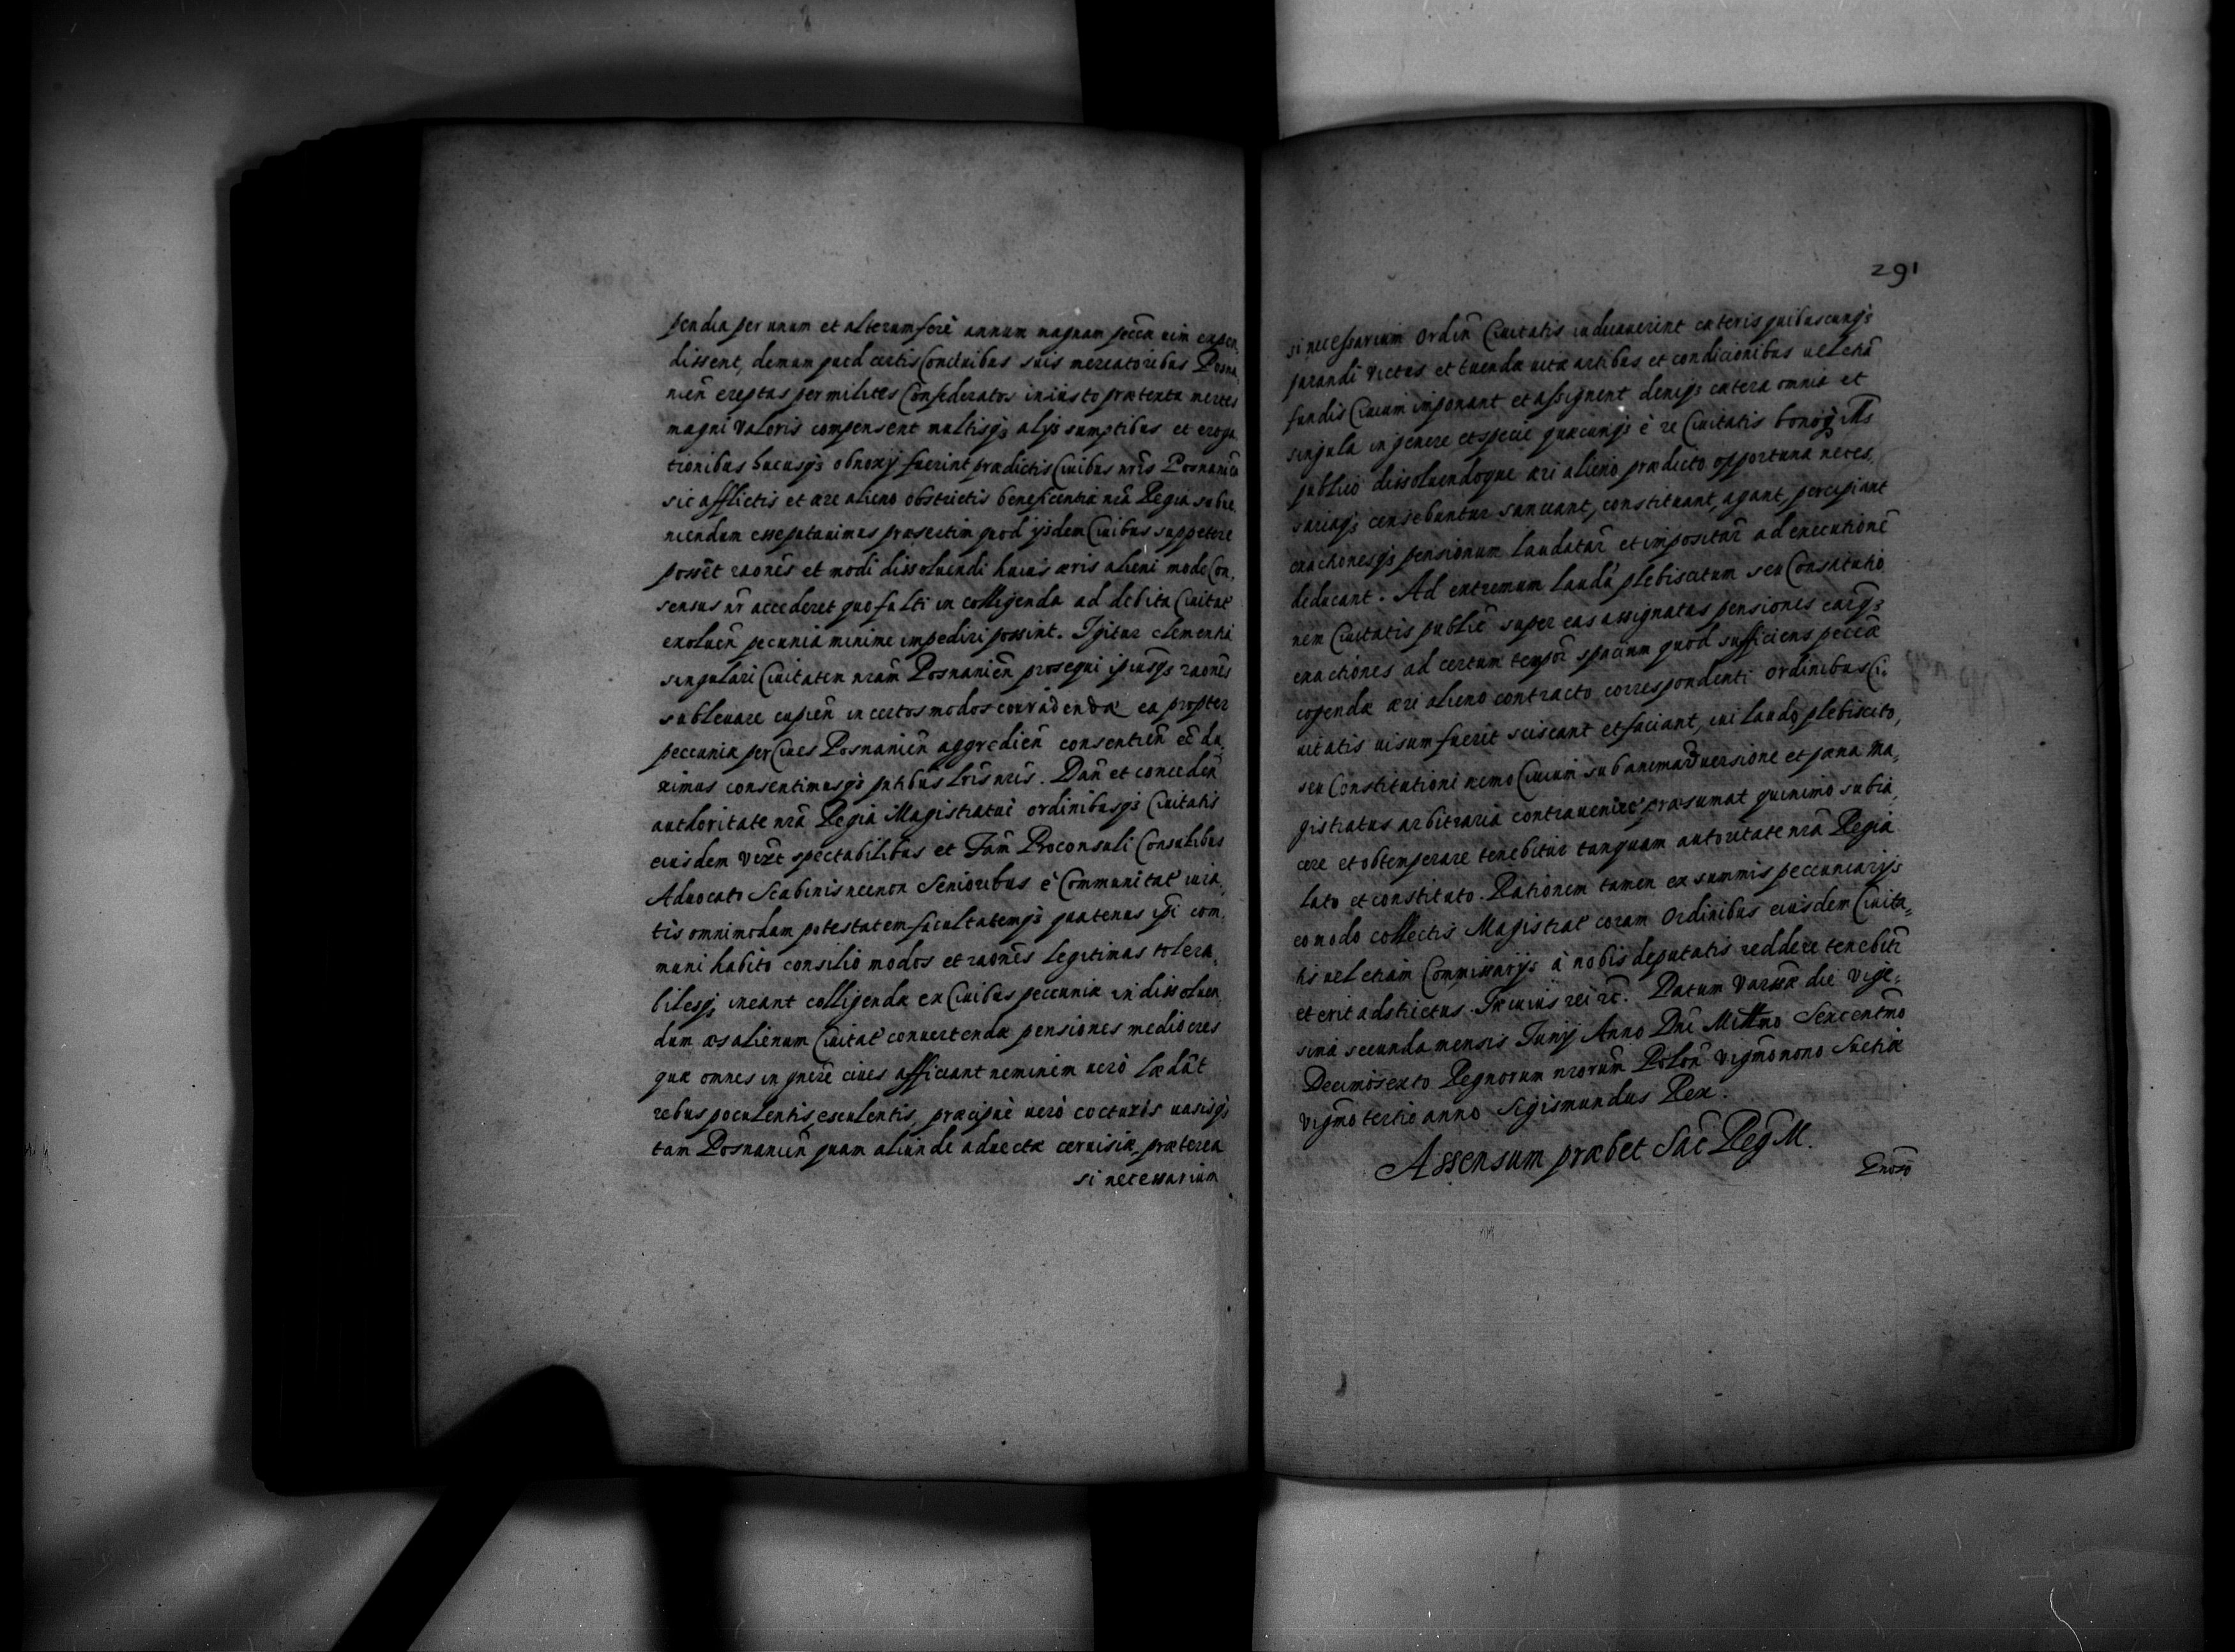 pendia per unum et alterum ferè annum magnam peccū uim expen,
dissent, demum quod certis Conciuibus suis mercatoribus Posna,
nień ereptas per milites Confederatos iniusto prætextu merces
magni Valoris compensent multisqȝ alijs sumptibus et eroga,
tionibus hucusqȝ obnoxij fuerint prædictis Ciuibus nr̃is Posnanień
sic afflictis et ære alieno obstrictis beneficentia nr̃a Regia subue,
niendum esse putauimus præsertim quod ijsdem Ciuibus suppetere
possēt raōnes et modi dissoluendi huius æris alieni modo Con,
sensus nr̃ accederet quo fulti in colligenda ad debita Ciuitat̃
exolueñ pecunia minime impediri possint. Igitur clementia
singulari Ciuitatem nr̃am Posnanień prosequi ipiusqȝ raōnes
subleuare cupień in certos modos corradendæ ea propter
peccuniæ per Ciues Posnanień aggredień consentień eē du,
ximus consentimusqȝ pñtibus lr̃is nr̃is. Dań et conceden̄
authoritate nr̃a Regia Magistratui ordinibusqȝ Ciuitatis
eiusdem vir̃t spectabilibus et Fam̃ Proconsuli Consulibus
Aduocato Scabinis necnon Senioribus è Communitat̃ iura,
tis omnimodam potestatem facultatemqȝ quatenus ip̃i com,
muni habito consilio modos et raōnes legitimas tolera,
bilesqȝ ineant colligendæ ex Ciuibus peccuniæ in dissoluen,
dum æs alienum Ciuitat̃ conuertendæ pensiones mediocres
quæ omnes in gñere ciues afficiant neminem uerò lædāt
rebus poculentis esculentis, præcipuè uerò cocturis uasisqȝ
tam Posnanień quam aliunde aduectæ ceruisiæ, præterea
si necessarium
291
si necessarium Ordiń Ciuitatis iudicauerint cæteris quibuscunqȝ
parandi victus et tuendæ uitæ artibus et condicionibus uel etiā
fundis Ciuium imponant et assignent deniqȝ cætera omnia et
singula in genere et specie quæcunqȝ è re Ciuitatis bonoqȝ illis
publico dissoluendoque æri alieno prædicto opportuna neces,
sariaqȝ censebuntur sanciant, constituant, agant, percipiant
exactionesqȝ pensionum laudatar̃ et impositar̃ ad executionē
deducant. Ad extremum lauda plebiscitum seu Constitutio,
nem Ciuitatis publiċ super eas assignatas pensiones earqȝ
exactiones ad certum tempor̃ spacium quod sufficiens peccæ
cogendæ æri alieno contracto correspondenti Ordinibus Ci,
uitatis uisum fuerit sciscant et faciant, cui laudo plebiscito,
seu Constitutioni nemo Ciuium sub animaduersione et pæna Ma,
gistratus arbitraria contrauenire præsumat quinimo subia,
cere et obtemperare tenebitur tanquam autoritate nr̃a Regia
lato et constituto. Rationem tamen ex summis peccuniarijs
eo modo collectis Magistrat̃ coram Ordinibus eiusdem Ciuita,
tis uel etiam Commissarijs à nobis deputatis reddere tenebitr̃
et erit adstrictus. In cuius rei &c̃. Datum Varssæ die vige,
sima secunda mensis Junij Anno Dn̄i Millmo Sexcentmo
Decimosexto Regnorum nrorum Polon̄ vigmonono Suetiæ
vigmotertio anno Sigismundus Rex.
Assensum præbet Sac̃ Reg̃ M.